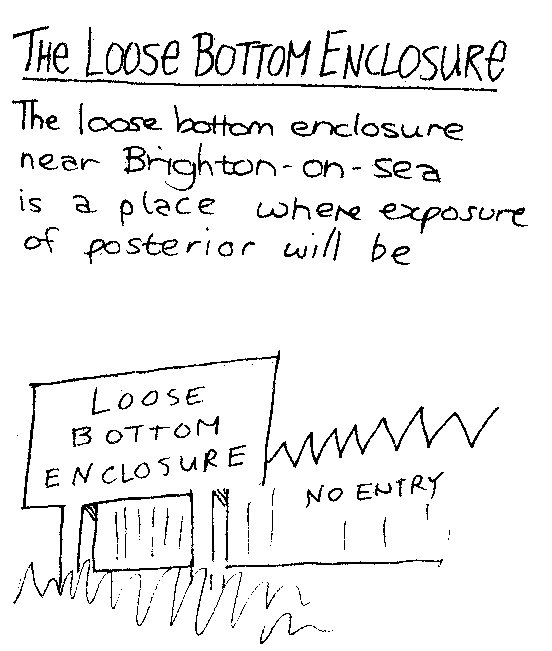 THE LOOSE BOTTOM ENCLOSURE
The loose bottom enclosure
near Brighton-on-sea
is a place where exposure
of posterior will be
LOOSE
BOTTOM
ENCLOSURE
NO ENTRY